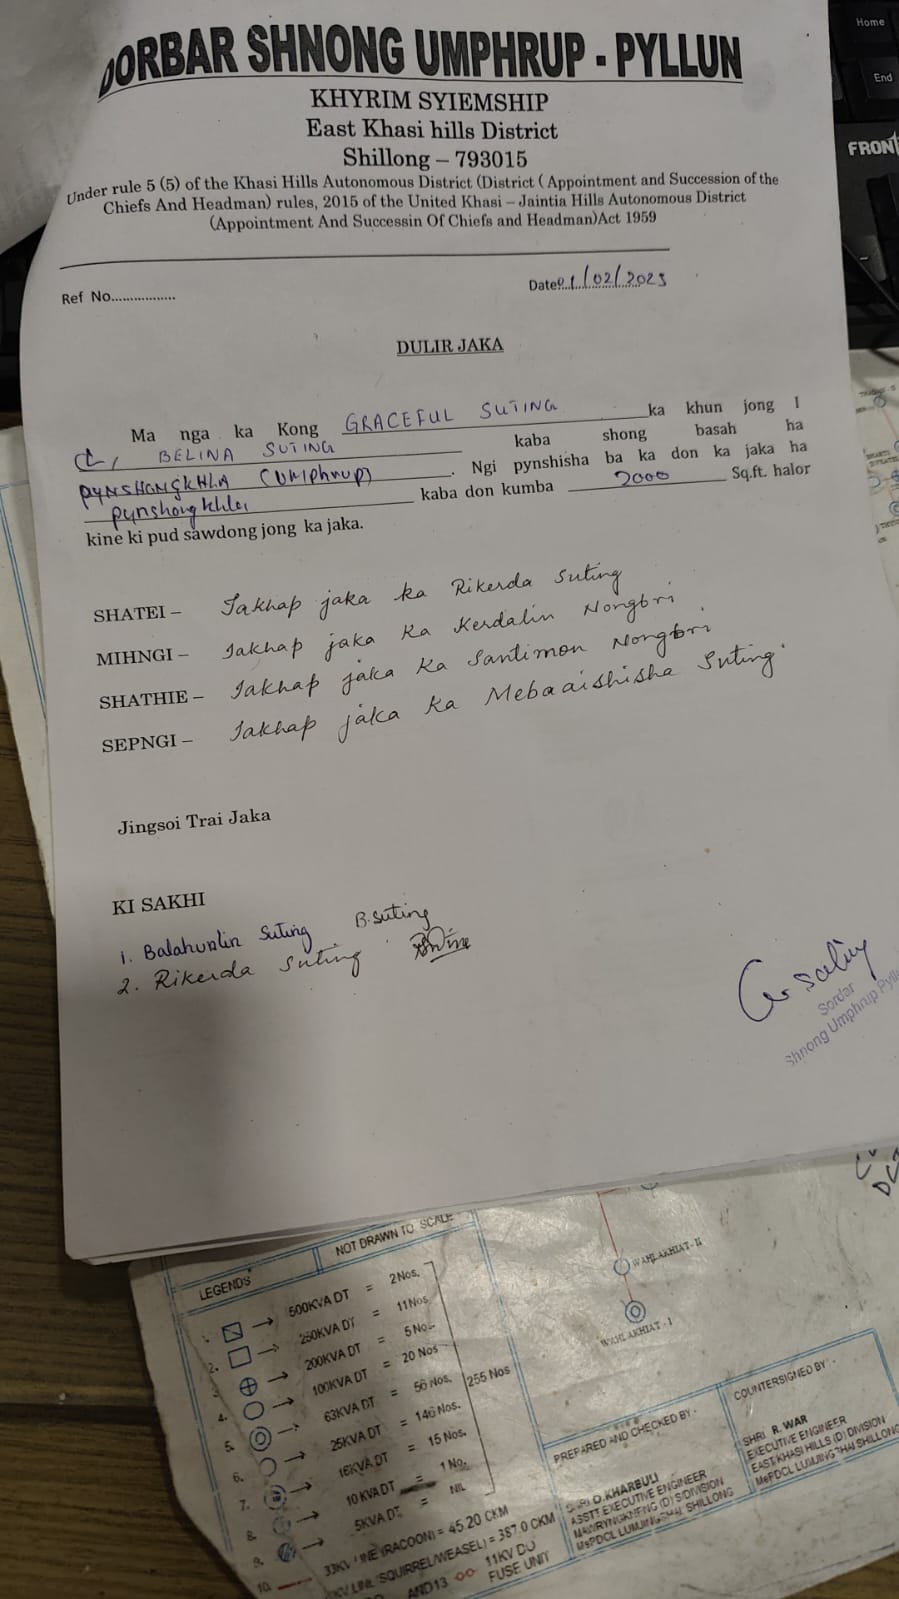 DORBAR SHNONG UMPHRUP - PYLLUN
KHYRIM SYIEMSHIP
East Khasi hills District
Shillong – 793015
Under rule 5 (5) of the Khasi Hills Autonomous District (District ( Appointment and Succession of the
Chiefs And Headman) rules, 2015 of the United Khasi – Jaintia Hills Autonomous District
(Appointment And Successin Of Chiefs and Headman)Act 1959
Ref No................
Date 01/02/2023
DULIR JAKA
Ma nga ka Kong GRACEFUL SUTING ka khun jong I
(L) BELINA SUTING kaba shong basah ha
PYNSHONGKHLA (UMPHRUP). Ngi pynshisha ba ka don ka jaka ha
Pynshongkhla kaba don kumba 2000 Sq.ft. halor
kine ki pud sawdong jong ka jaka.
SHATEI – Jakhap jaka ka Rikerda Suting
MIHNGI – Jakhap jaka Ka Kerdalin Nongbri
SHATHIE – Jakhap jaka Ka Santimon Nongbri
SEPNGI – Jakhap jaka Ka Mebaaishisha Suting
Jingsoi Trai Jaka
KI SAKHI
1. Balahunlin Suting B.Suting
2. Rikerda Suting
Sordar
Shnong Umphrup Pyll
LEGENDS
NOT DRAWN TO SCALE
500KVA DT = 2Nos.
250KVA DT = 11Nos
200KVA DT = 5No.
100KVA DT = 20 Nos
63KVA DT = 56 Nos.
255 Nos
25KVA DT = 146 Nos.
16KVA DT = 15 Nos.
10 KVA DT = 1 No.
5KVA DT = NIL
10. 33KV LINE (RACOON) = 45.20 CKM
LINE (SQUIRREL/WEASEL) = 387.0 CKM
AND13 11KV DO
FUSE UNIT
WAHLAKHIAT - II
WAHLAKHIAT - I
PREPARED AND CHECKED BY -
SHRI D.KHARBULI
ASSTT EXECUTIVE ENGINEER
MAWRYNGKNENG (D) S/DIVISION
MePDCL LUMJINGSHAI SHILLONG
COUNTERSIGNED BY -
SHRI R. WAR
EXECUTIVE ENGINEER
EAST KHASI HILLS (D) DIVISION
MePDCL LUMJINGSHAI SHILLONG
Home
End
FRONT